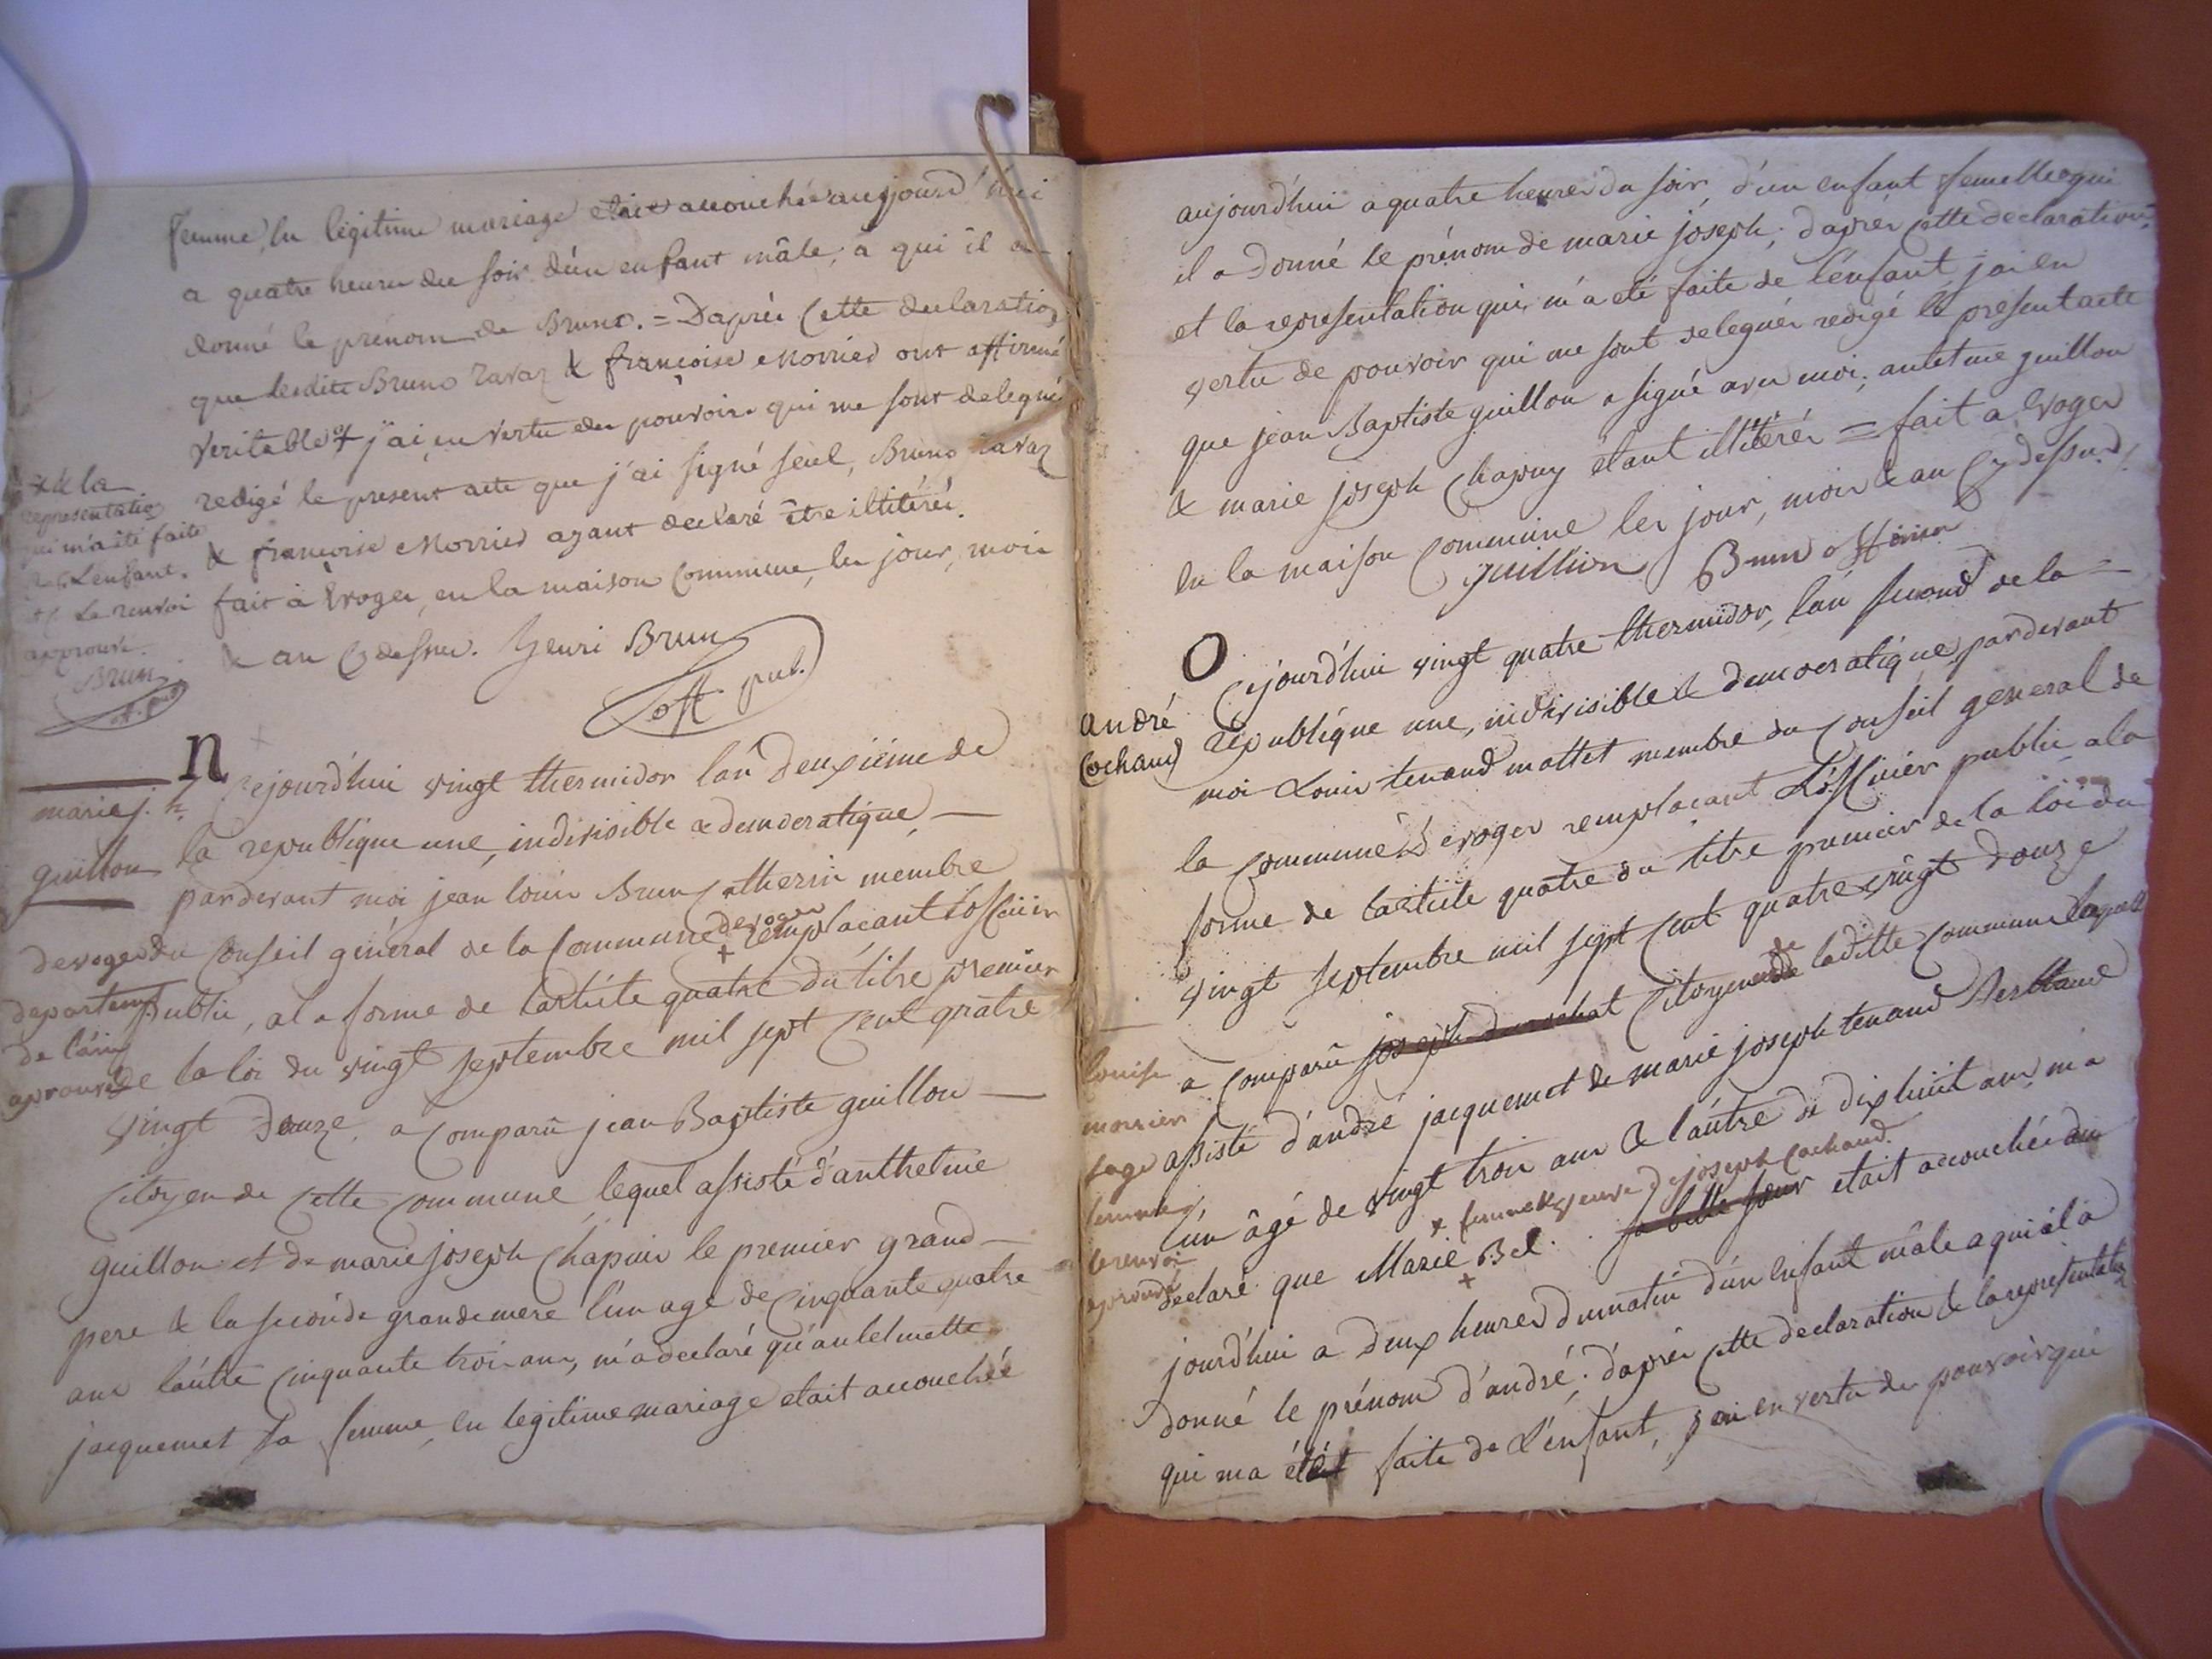 femme, en légitime mariage etait accouchée aujourd'hui
a quatre heures du soir d'un enfant mâle, a qui il a
donné le prénom de Bruno. = D'après cette declaration
que lesdits Bruno ravaz & françoise Morrier ont affirmé
veritable + j'ai, en vertu des pouvoirs qui me sont delegués
redigé le present acte que j'ai signé seul, Bruno ravaz
& françoise Morrier ayant declaré être illitérés.
fait à Evoges, en la maison commune, les jour, mois
& an cy dessus. Henri Brun
off. pub.
+ & la
representation
qui m'a été faite
de L'enfant.
Le renvoi
approuvé.
Brun
off. pub.
N
marie j. h.
guillon
Cejourd'hui vingt thermidor l'an deuxième de
la republique une, indivisible & democratique —
pardevant moi jean louis Brun Catherin membre
du conseil général de la Commune + devoges remplacant l'officier
public, a la forme de l'article quatre du titre premier
de la loi du vingt septembre mil sept cent quatre
vingt douze, a comparû jean Baptiste guillon —
citoyen de cette commune, lequel assisté d'anthelme
guillon et de marie joseph Chapuis le premier grand
pere & la seconde grandemere l'un agé de cinquante quatre
ans l'autre cinquante trois ans, m'a declaré qu'anthelmette
jacquemet sa femme, en legitime mariage etait accouchée
devoges
departemt
de l'ain
aprouvé
aujourd'hui a quatre heures du soir, d'un enfant femelle a qui
il a donné le prénom de marie joseph; d'après cette declaration,
et la representation qui m'a eté faite de l'enfant, j'ai en
vertu de pouvoir qui me sont delegués redigé le present acte
que jean Baptiste guillon a signé avec moi; antelme guillon
& marie joseph Chapuy étant illitérés = fait a Evoges
en la maison commune les jour, mois & an cy dessus,
guillion Brun officier
O
andré
Cochand
Cejourd'hui vingt quatre thermidor, l'an second de la
république une, indivisible & democratique, pardevant
moi Louis tenand mottet membre du conseil general de
la commune d'evoges remplaçant L'officier public a la
forme de l'article quatre du titre premier de la loi du
vingt septembre mil sept cent quatre vingt douze
a comparû citoyenne de laditte commune laquelle
assisté d'andré jacquemet & marie joseph tenand
l'un âgé de vingt trois ans & l'autre de dixhuit ans, m'a
+ femme veuve de joseph cochand.
declaré que Marie Bel + sa belle sœur etait accouchée au
jourd'hui a deux heures du matin d'un enfant mâle a qui il a
donné le prénom d'andré; d'après cette declaration & la representation
qui m'a été faite de L'enfant, j'ai en vertu des pouvoirs qui
louise
morrier
sage
femme,
le renvoi
aprouvé